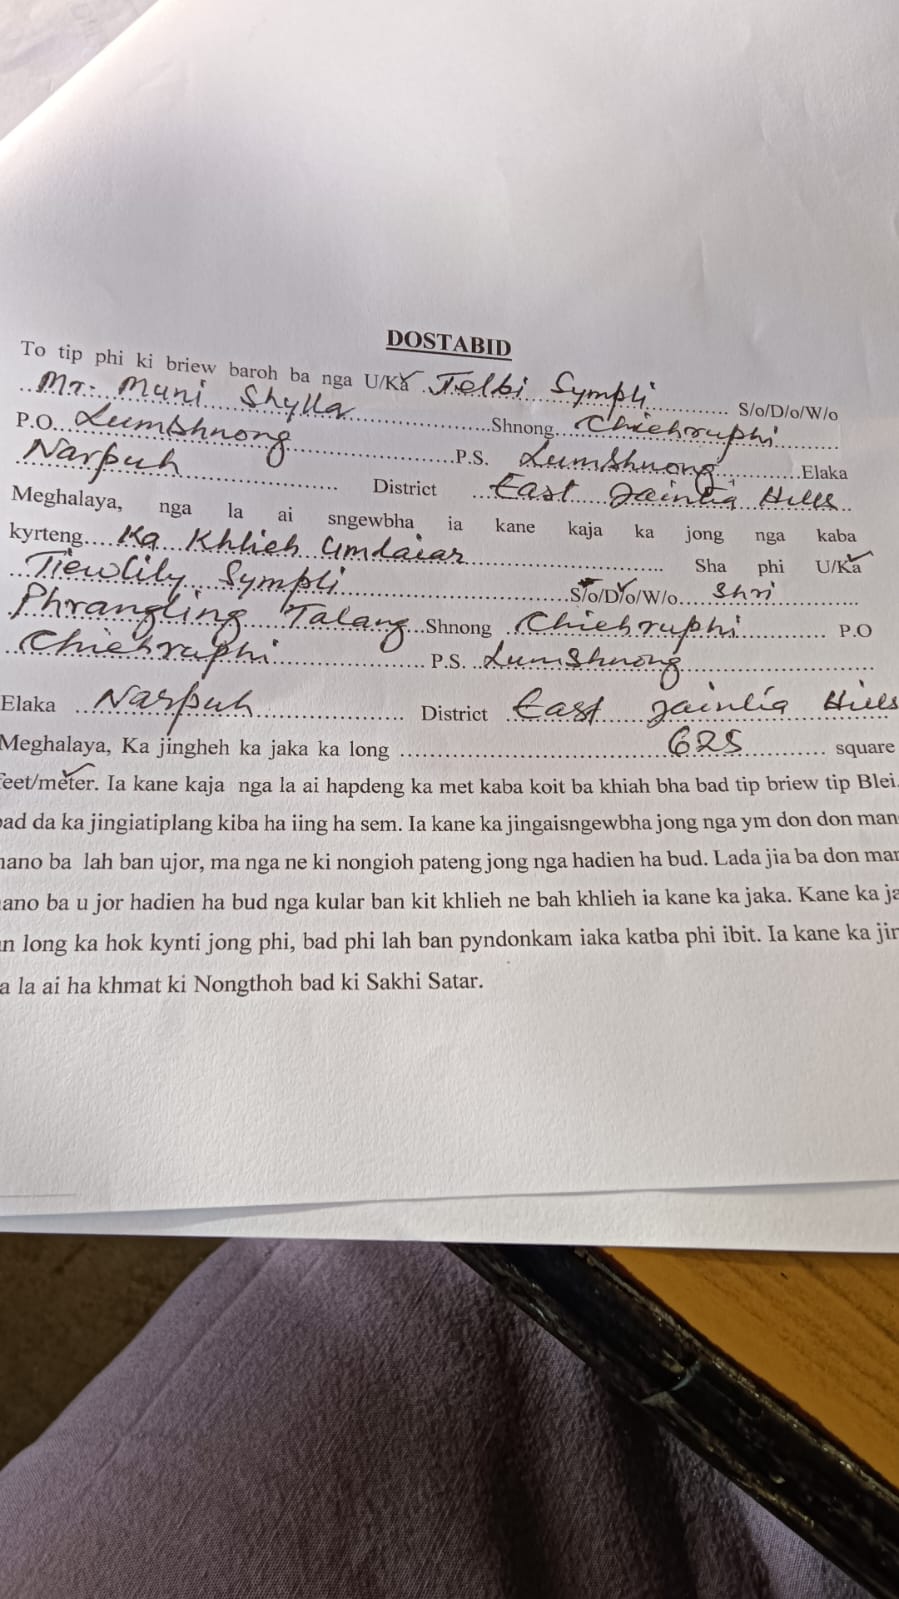 DOSTABID
To tip phi ki briew baroh ba nga U/Ka Telbi Sympli S/o/D/o/W/o
Mr. Muni Shylla Shnong Chiehruphi
P.O. Lumshnong P.S. Lumshnong Elaka
Narpuh District East Jaintia Hills
Meghalaya, nga la ai sngewbha ia kane kaja ka jong nga kaba
kyrteng Ka Khlieh Umdaiar Sha phi U/Ka
Tiewlily Sympli S/o/D/o/W/o Shri
Phrangling Talang Shnong Chiehruphi P.O
Chiehruphi P.S. Lumshnong
Elaka Narpuh District East Jaintia Hills
Meghalaya, Ka jingheh ka jaka ka long 625 square
feet/meter. Ia kane kaja nga la ai hapdeng ka met kaba koit ba khiah bha bad tip briew tip Blei.
bad da ka jingiatiplang kiba ha iing ha sem. Ia kane ka jingaisngewbha jong nga ym don don man
mano ba lah ban ujor, ma nga ne ki nongioh pateng jong nga hadien ha bud. Lada jia ba don man
mano ba u jor hadien ha bud nga kular ban kit khlieh ne bah khlieh ia kane ka jaka. Kane ka ja
n long ka hok kynti jong phi, bad phi lah ban pyndonkam iaka katba phi ibit. Ia kane ka jin
a la ai ha khmat ki Nongthoh bad ki Sakhi Satar.